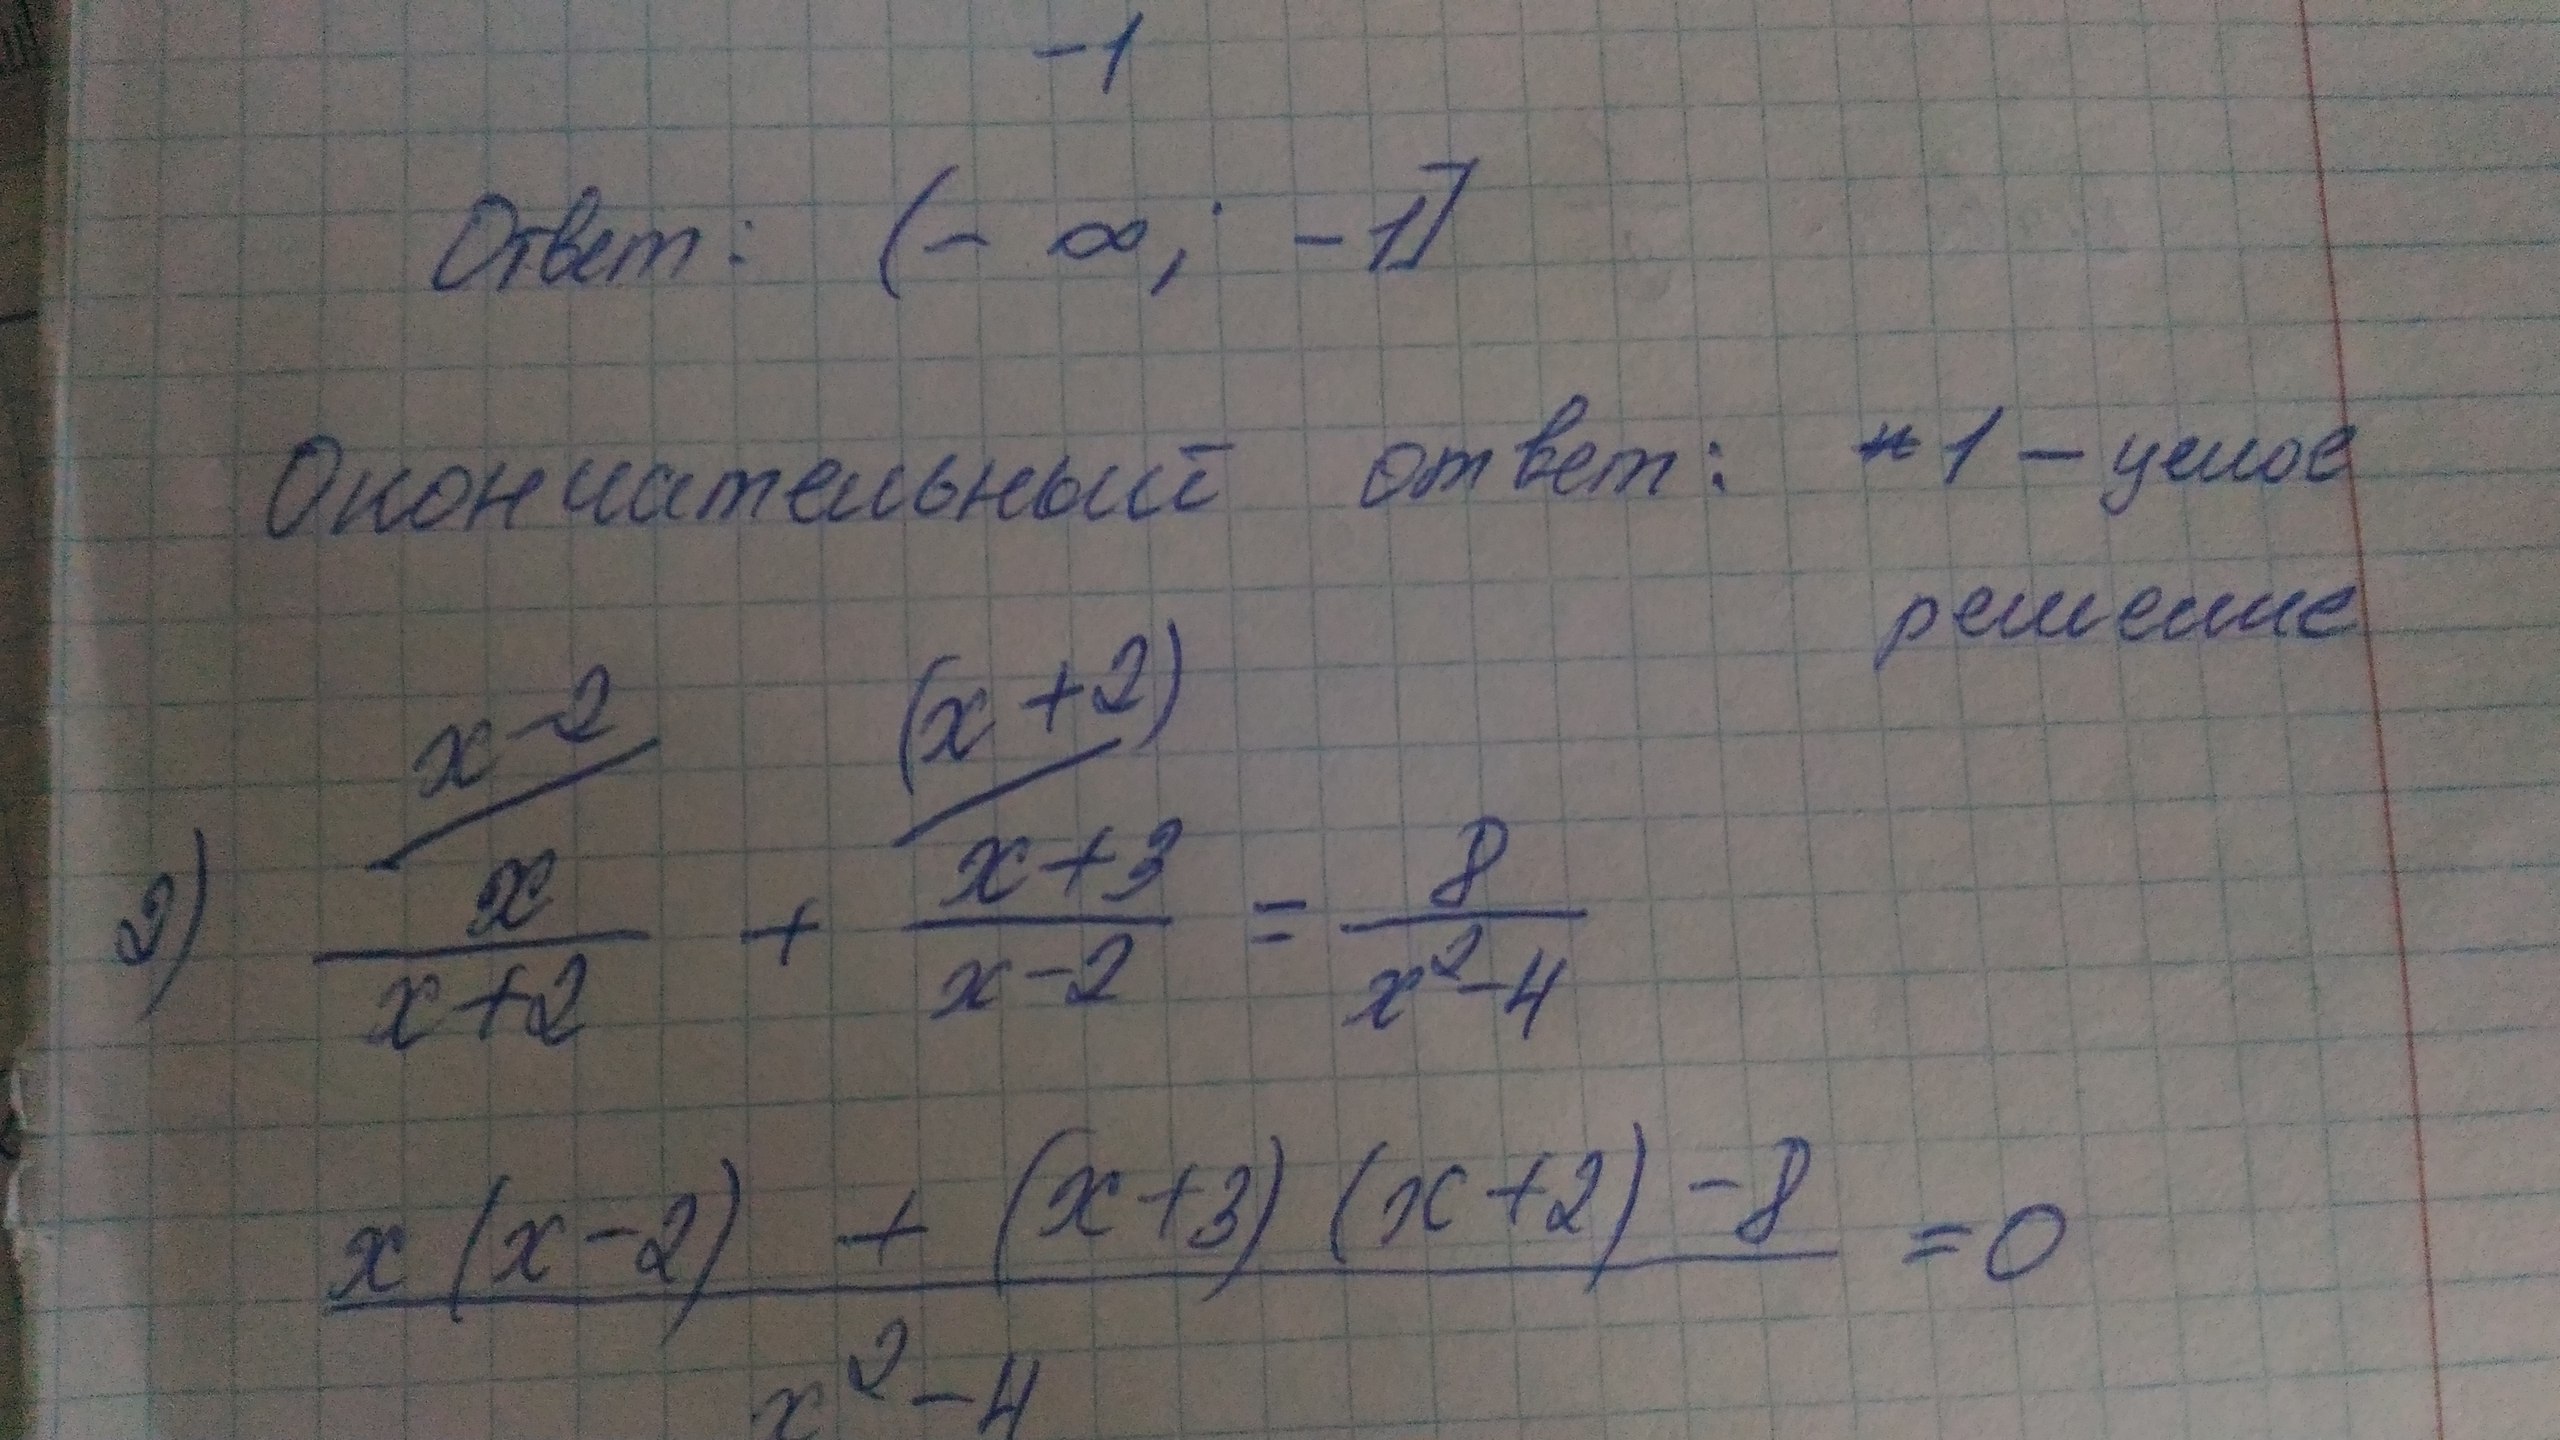 -1
Ответ: (- ∞; -1]
Окончательный ответ: 1 – целое
решение
x-2 (x+2)
2) x/(x+2) + (x+3)/(x-2) = 8/(x²-4)
x(x-2) + (x+3)(x+2) -8 = 0
x²-4